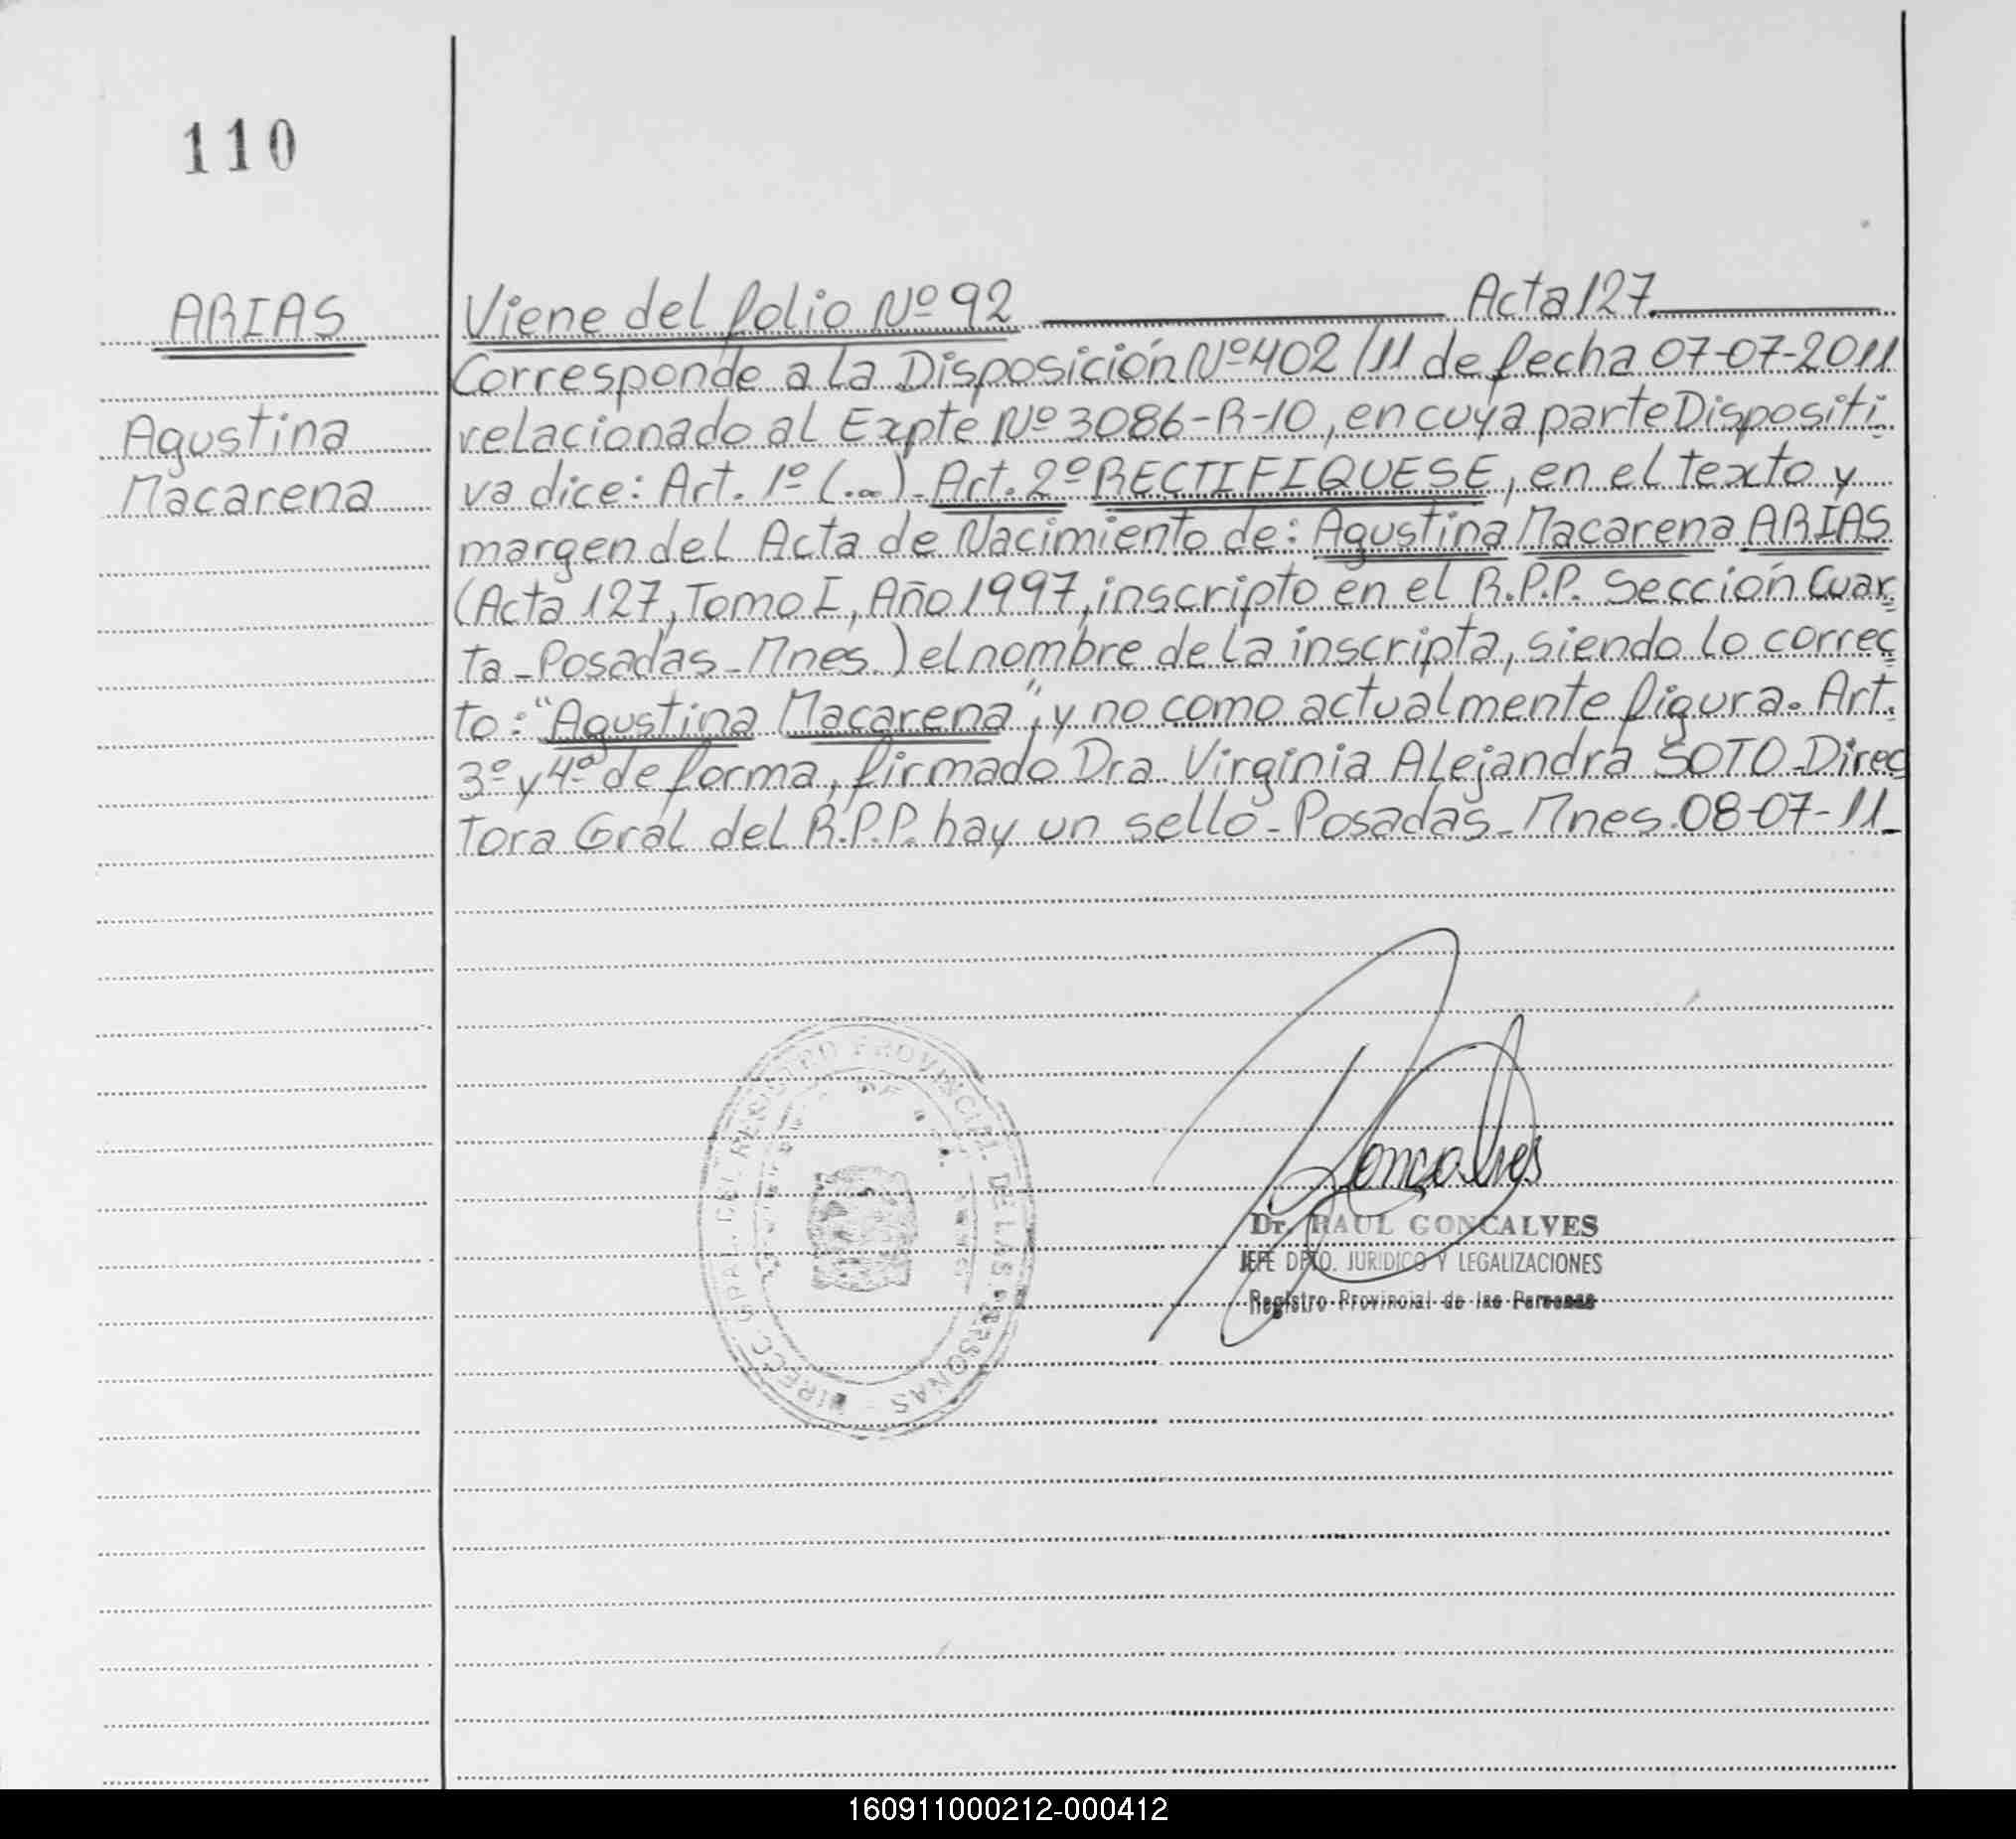 110
ARIAS
Agustina
Macarena
Viene del folio Nº 92 Acta 127.
Corresponde a la Disposición Nº 402/11 de fecha 07-07-2011
relacionado al Expte Nº 3086-R-10, en cuya parte Dispositi
va dice: Art. 1º (...)_ Art. 2º RECTIFIQUESE, en el texto y
margen del Acta de Nacimiento de: Agustina Macarena ARIAS
(Acta 127, Tomo I, Año 1997, inscripto en el R.P.P. Sección Cuar
ta_Posadas_Mnes.) el nombre de la inscripta, siendo lo correc
to: "Agustina Macarena", y no como actualmente figura. Art.
3º y 4º de forma, firmado Dra Virginia Alejandra SOTO_Direc
tora Gral del R.P.P. hay un sello_Posadas_Mnes.08-07-11_
DIRECC. GRAL. DEL REGISTRO PROVINCIAL DE LAS PERSONAS
Goncalves
Dr. RAUL GONCALVES
JEFE DPTO. JURIDICO Y LEGALIZACIONES
Registro Provincial de las Personas
160911000212-000412